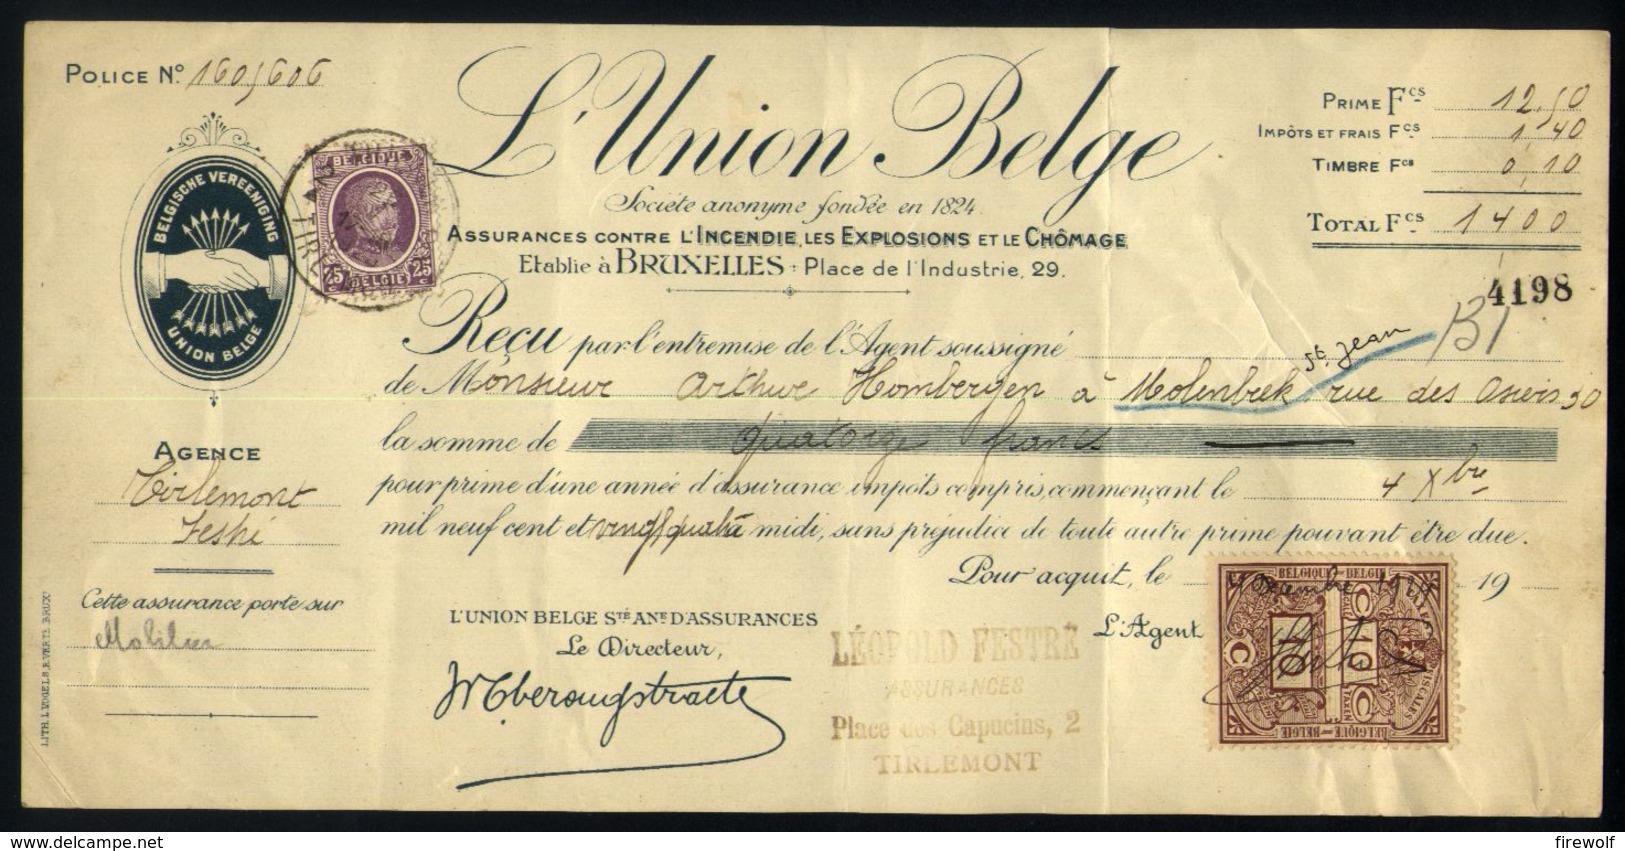 POLICE Nº 1605606
L'Union Belge
Société anonyme fondée en 1824.
ASSURANCES CONTRE L'INCENDIE, LES EXPLOSIONS ET LE CHÔMAGE
Etablie à BRUXELLES : Place de l'Industrie, 29.
PRIME Fcs 12,50
IMPÔTS ET FRAIS Fcs 1,40
TIMBRE Fcs 0,10
TOTAL Fcs 1400
4198
B1
BELGISCHE VEREENIGING
UNION BELGE
BELGIQUE
25c BELGIE 25c
Reçu par l'entremise de l'Agent soussigné
St. Jean
de Monsieur Arthur Hombergen à Molenbeek rue des Osiers 30
la somme de quatorze francs
pour prime d'une année d'assurance impôts compris, commençant le 4 Xbre
mil neuf cent et vingt quatre midi, sans préjudice de toute autre prime pouvant être due.
Pour acquit, le 4 Décembre 1924 19
L'Agent
AGENCE
Tirlemont
Cette assurance porte sur
Mobilier
L'UNION BELGE STÉ ANE D'ASSURANCES
Le Directeur,
LÉOPOLD FESTRÉ
ASSURANCES
Place des Capucins, 2
TIRLEMONT
BELGIQUE-BELGIË
10
BELGIQUE-BELGIË
LITH. L. VOGELS, R. VERTE BRUX.
delcampe.net
firewolf